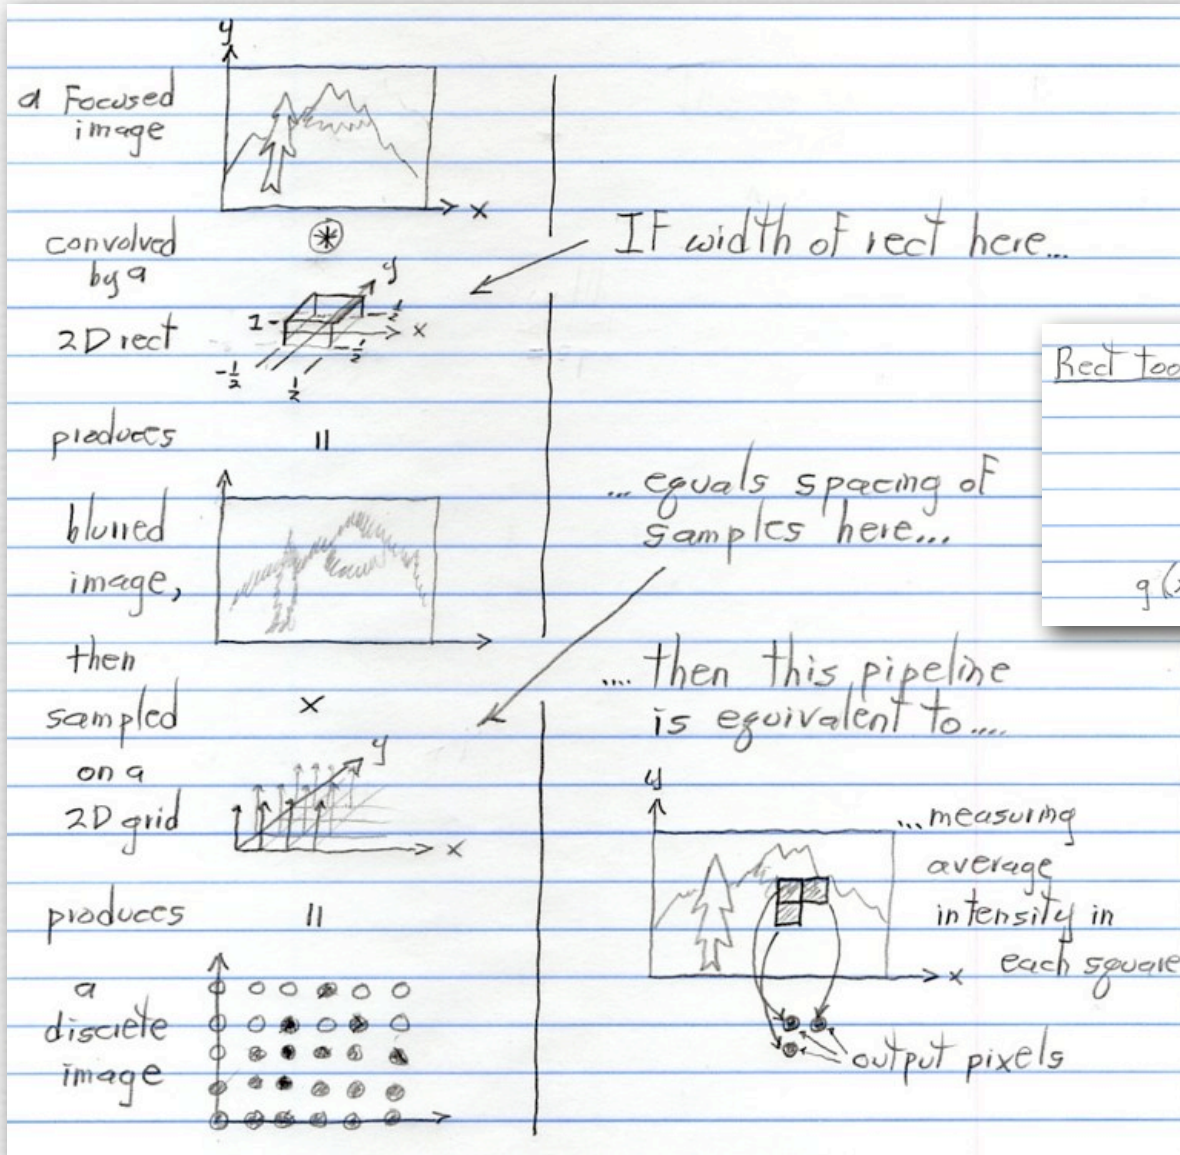 y
a Focused
image
x
convolved
by a
*
2D rect
1
y
x
-1/2
-1/2
-1/2
1/2
produces
=
blurred
image,
then
sampled
x
on a
2D grid
y
x
produces
=
a
discrete
image
IF width of rect here...
... equals spacing of
samples here...
.... then this pipeline
is equivalent to....
y
x
...measuring
average
intensity in
each square
output pixels
Rect too
g(